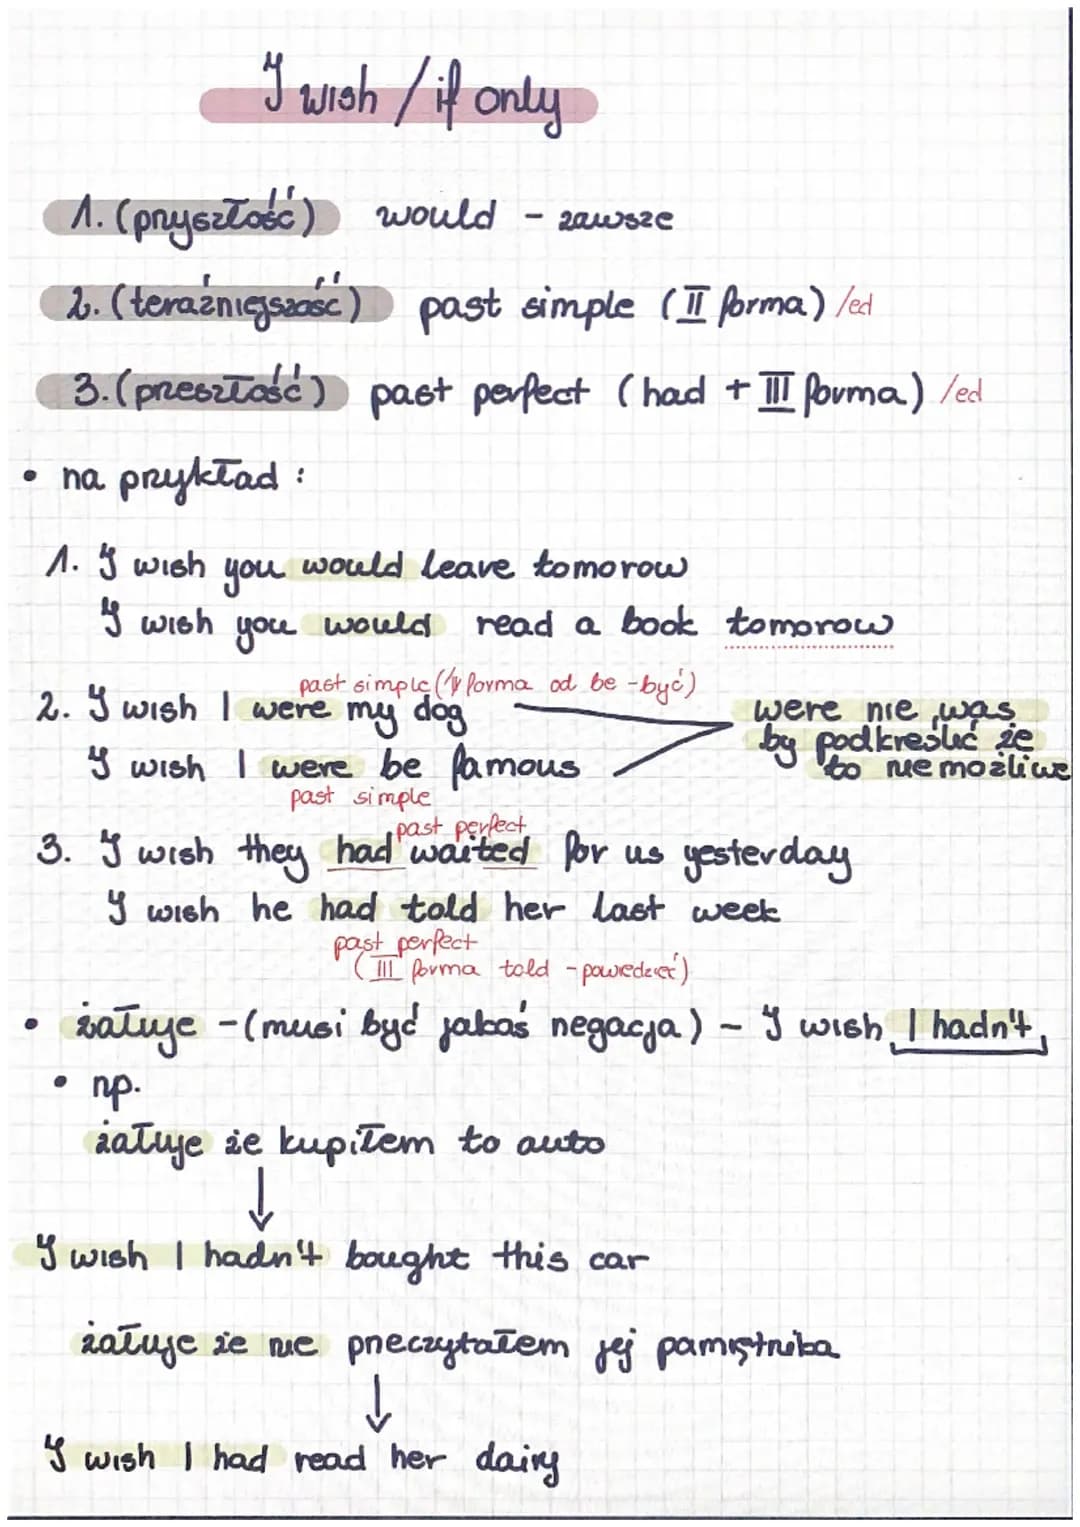 I wish / if only
1. (przyszłość) would - zawsze
2. (teraźniejszość) past simple (II forma) /ed
3. (przeszłość) past perfect (had + III forma) /ed
• na przykład :
1. I wish you would leave tomorow
I wish you would read a book tomorow
past simple ( forma od be - być)
2. I wish I were my dog
were nie was
by podkreślić że
to niemożliwe
I wish I were be famous
past simple
past perfect
3. I wish they had waited for us yesterday
I wish he had told her last week
past perfect
(III forma told - powiedzieć)
• żałuje - (musi być jakaś negacja) - I wish I hadn't
• np.
żałuje że kupiłem to auto
↓
I wish I hadn't bought this car
żałuje że nie przeczytałem jej pamiętnika
↓
I wish I had read her dairy